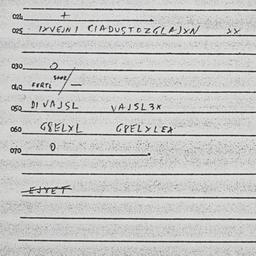 024 +
025 IXVEJNI CIADUSTOZGLAJXN XX
030 O
040 FERTL /—
050 DIVAJSL VAJSL3X
060 G8ELYL G8ELYLEX
070 0
EJYET